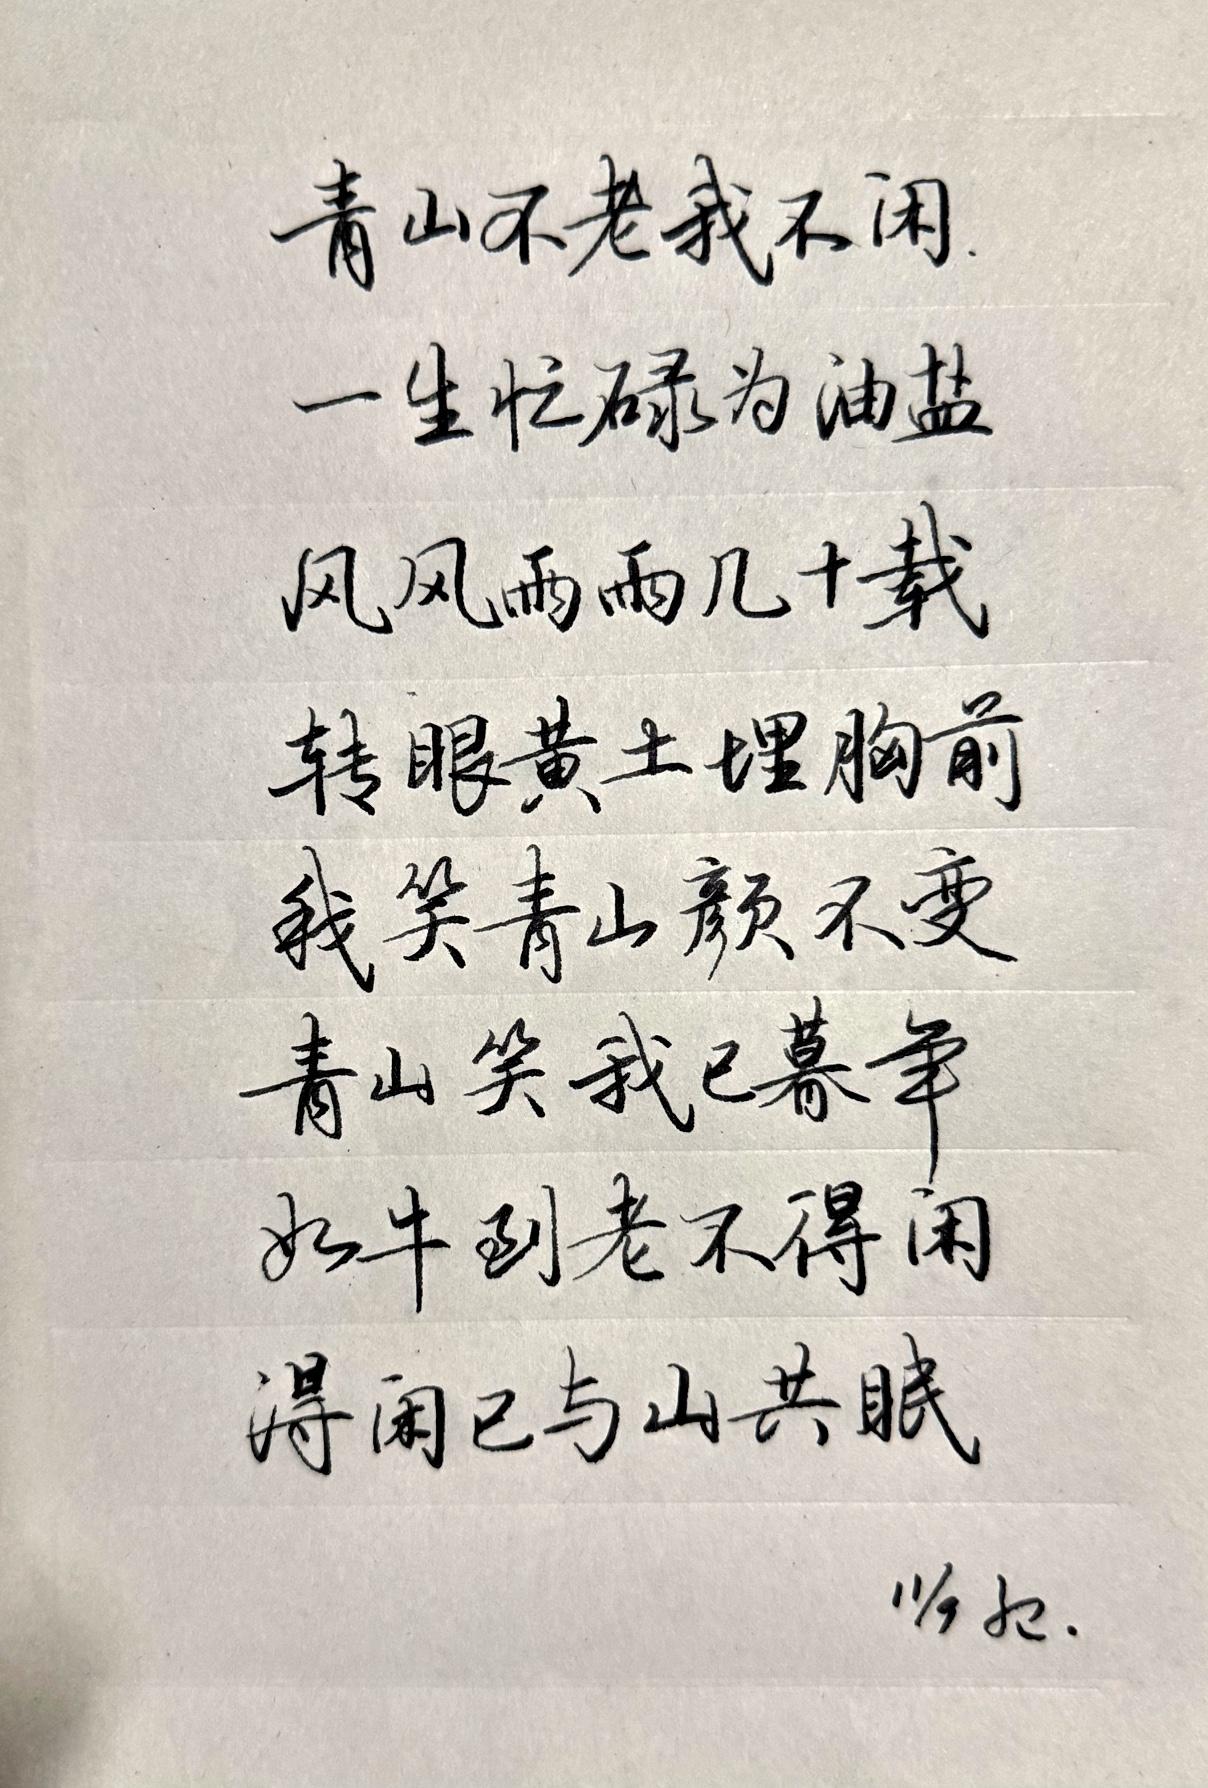 青山不老我不闲.
一生忙碌为油盐
风风雨雨几十载
转眼黄土埋胸前
我笑青山颜不变
青山笑我已暮年
如牛到老不得闲
得闲已与山共眠